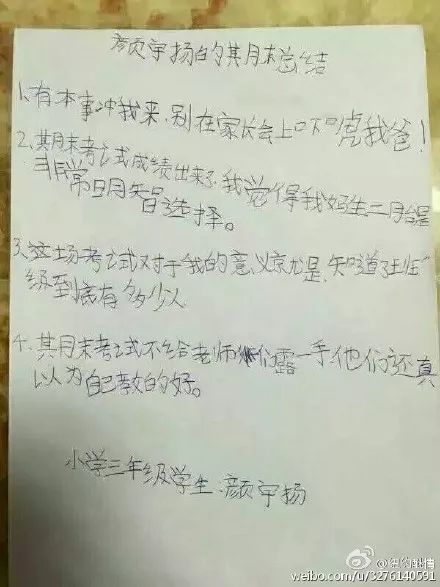 颜宇扬的其月末总结
1.有本事冲我来,别在家长会上口下口虎我爸!
2.其月末考试成绩出来了,我觉得我妈生二月台是
非常日月智选择。
3.这场考试对于我的意义京尤是,知道了班
级到底有多少人
4.其月末考试不给老师们露一手,他们还真
以为自己教的好。
小学三年级学生:颜宇扬
weibo.com/u/3276140591